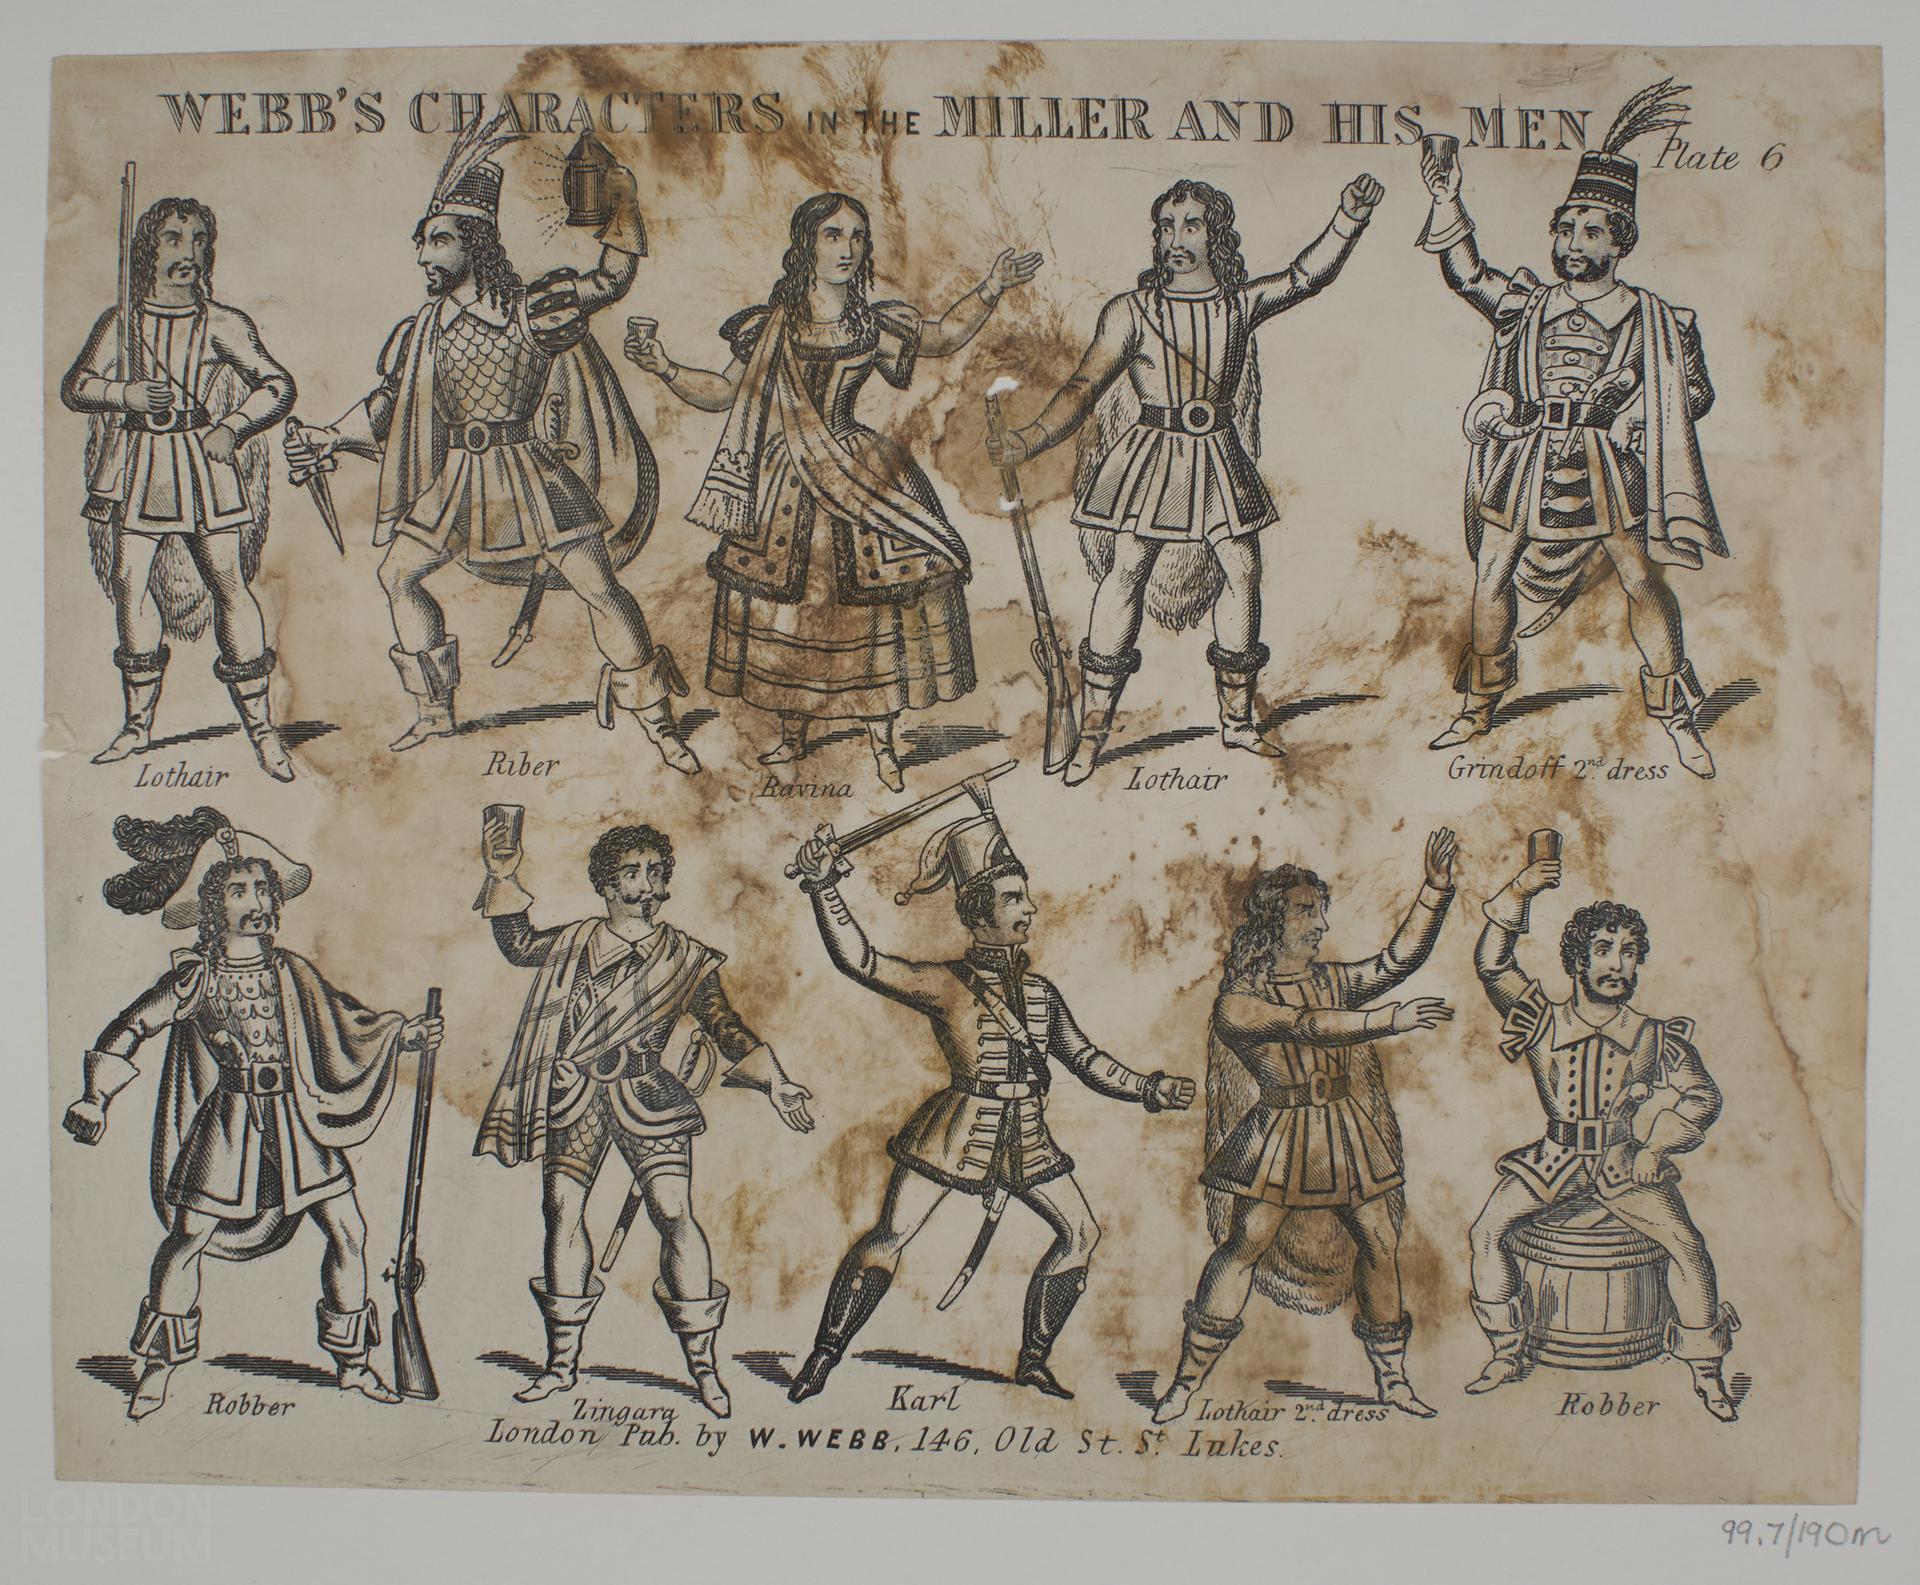 WEBB'S CHARACTERS IN THE MILLER AND HIS MEN
Plate 6
Lothair
Riber
Ravina
Lothair
Grindoff 2nd. dress
Robber
Zingara
Karl
Lothair 2nd. dress
Robber
London Pub. by W. WEBB, 146, Old St. St. Lukes.
LONDON
MUSEUM
99.7/190m